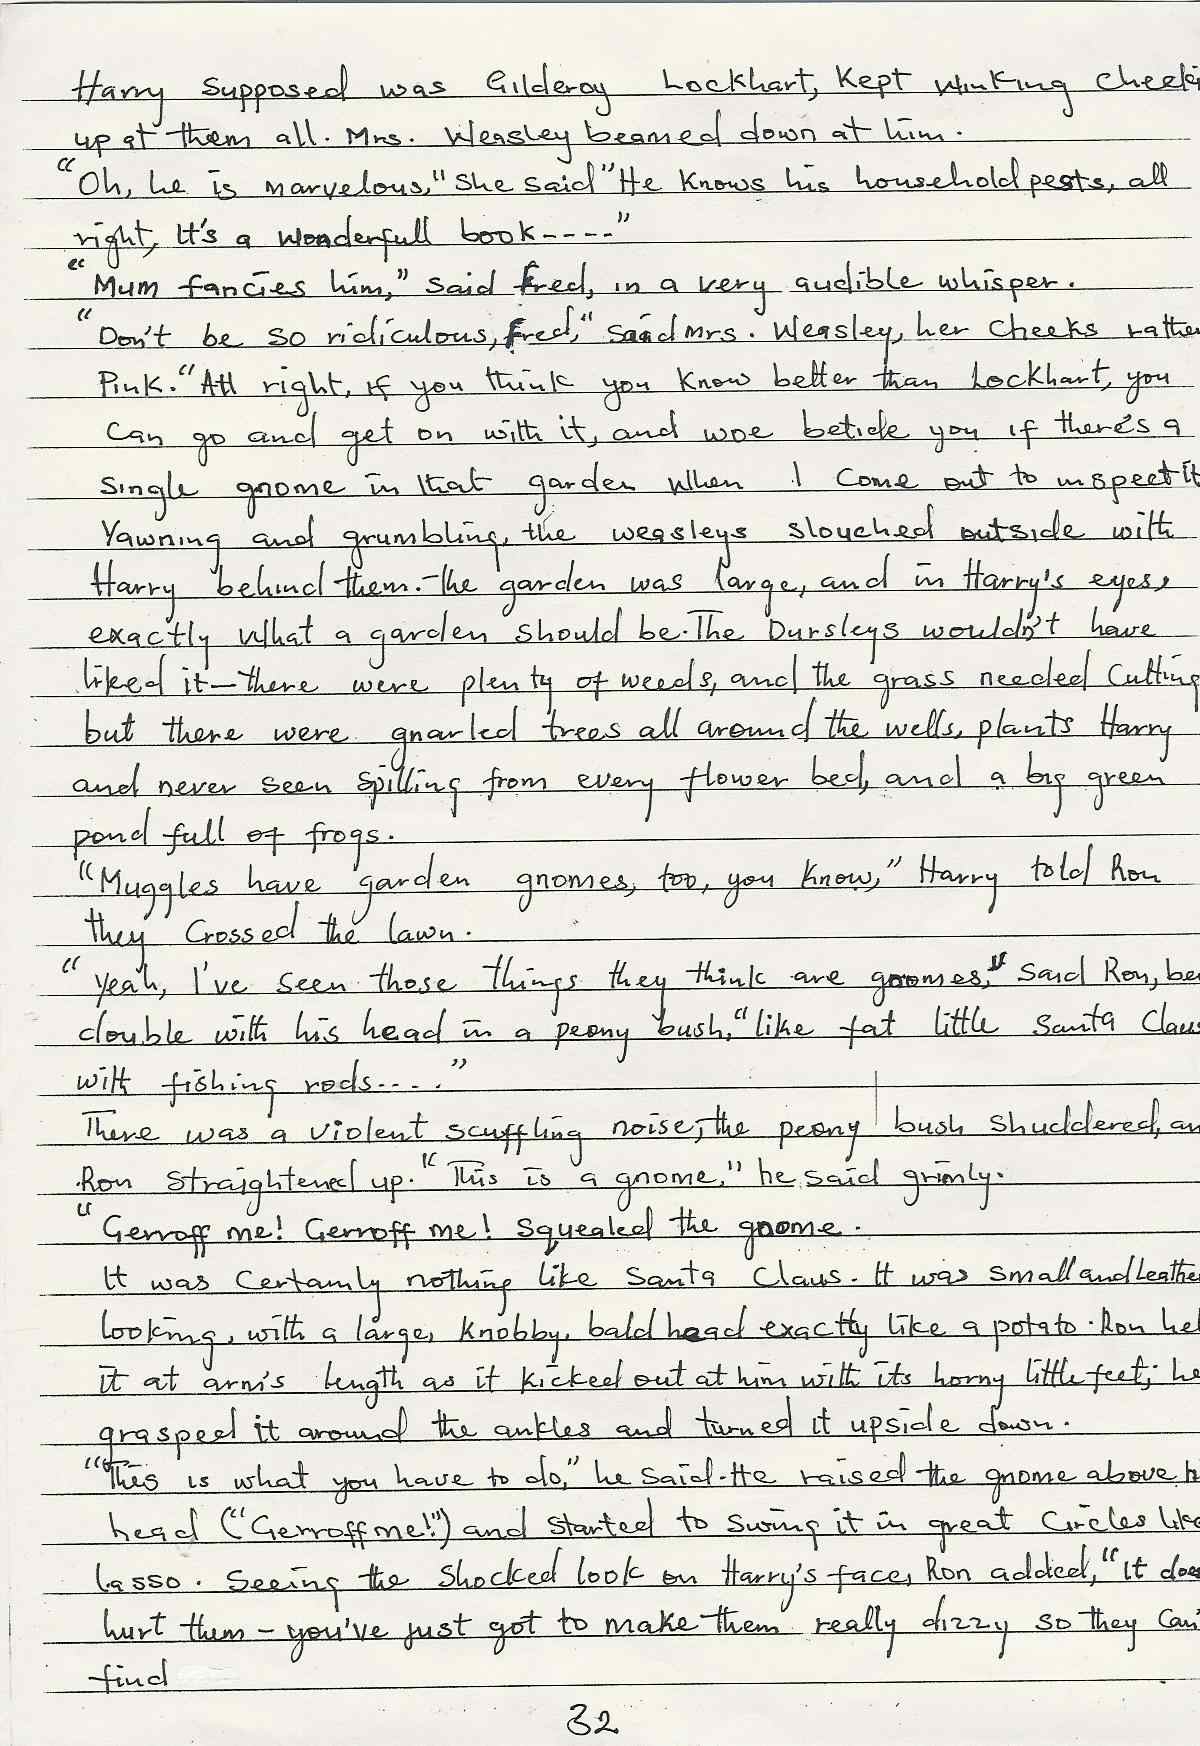 Harry Supposed was Gilderoy Lockhart, Kept winking cheeki
up at them all. Mrs. Weasley beamed down at him.
"Oh, he is marvelous," She said "He knows his household pests, all
right, It's a wonderfull book----"
"Mum fancies him," said Fred, in a very audible whisper.
"Don't be so ridiculous, Fred," said Mrs. Weasley, her cheeks rathe
Pink. "All right, if you think you know better than Lockhart, you
Can go and get on with it, and woe betide you if there's a
single gnome in that garden when I Come out to inspect it
Yawning and grumbling, the weasleys slouched outside with
Harry behind them. The garden was large, and in Harry's eyes,
exactly what a garden should be. The Dursleys wouldn't have
liked it—there were plenty of weeds, and the grass needed Cutting
but there were gnarled trees all around the wells, plants Harry
and never seen spilling from every flower bed, and a big green
pond full of frogs.
"Muggles have garden gnomes, too, you know," Harry told Ron
they Crossed the lawn.
"Yeah, I've seen those things they think are gnomes," said Ron, be
double with his head in a peony bush, "like fat little Santa Claus
with fishing rods...."
There was a violent scuffling noise, the peony bush shuddered, an
Ron straightened up. "This is a gnome," he said grimly.
"Gerroff me! Gerroff me! squealed the gnome.
It was Certainly nothing like Santa Claus. It was small and Leathe
looking, with a large, knobby, bald head exactly like a potato. Ron hel
it at arm's length as it kicked out at him with its horny little feet; he
grasped it around the ankles and turned it upside down.
"This is what you have to do," he said. He raised the gnome above h
head ("Gerroff me!") and started to swing it in great Circles like
lasso. Seeing the Shocked look on Harry's face, Ron added, "It does
hurt them - you've just got to make them really dizzy so they Can'
find
32